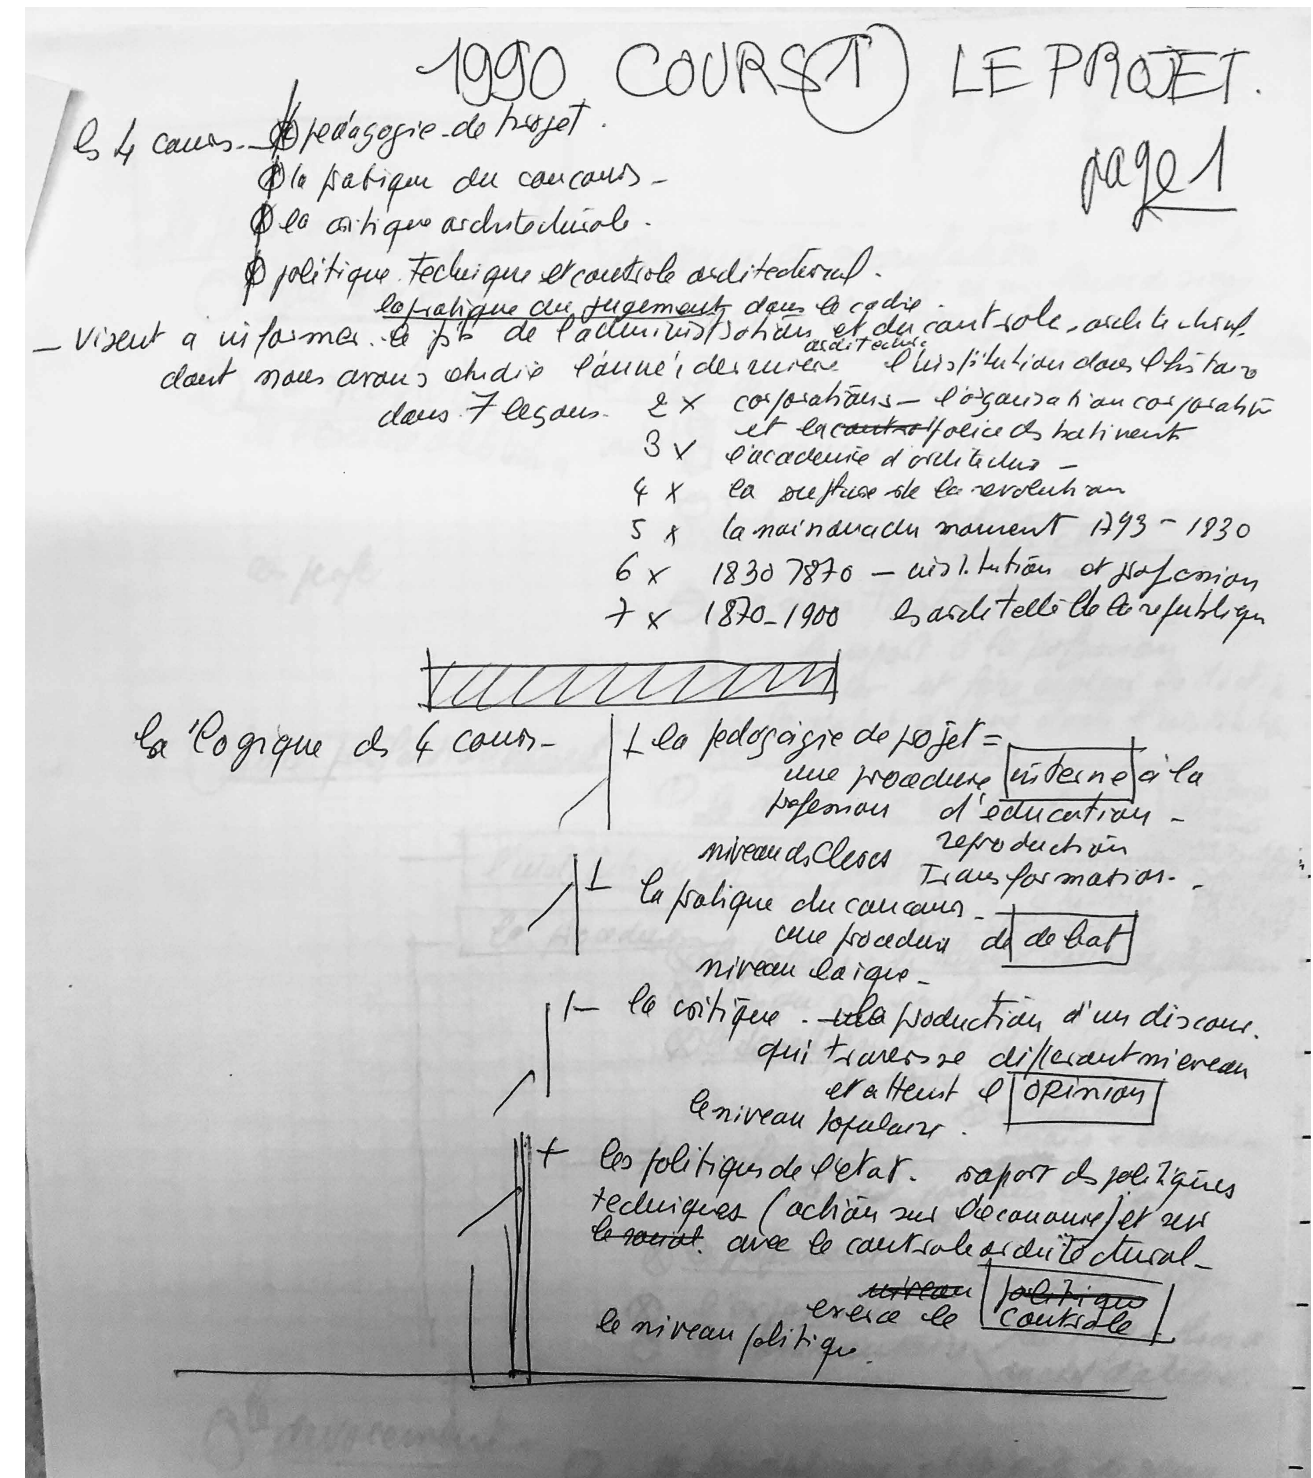 1990 COURS 1 LE PROJET.
page 1
les 4 cours - pédagogie de projet.
la pratique du concours -
la critique architecturale.
politique technique et controle architectural.
la pratique du jugement dans le cadre
- visent a informer de l'administration et du controle architectural
architecture
dont nous avons etudié l'année dernière l'institution dans l'histoire
dans 7 leçons. 2 x corporations - l'organisation corporative
et la police ds batiments
3 x l'academie d'architecture -
4 x la rupture de la revolution
5 x la naissance du moment 1793 - 1830
6 x 1830 1870 - institution et profession
7 x 1870-1900 la république
la logique ds 4 cours -
la pedagogie de projet =
une procedure interne à la
profession d'éducation -
reproduction
niveau ds
transformation -
la pratique du concours -
une procedure de debat
niveau laique -
la critique . la production d'un discour.
qui traverse differant niveau
et atteint l'opinion
le niveau populaire.
+ les politiques de l'etat. raport ds politiques
techniques (action sur l'economie) et sur
le social. avec le controle architectural -
niveau politique
exerce le controle
le niveau politique.